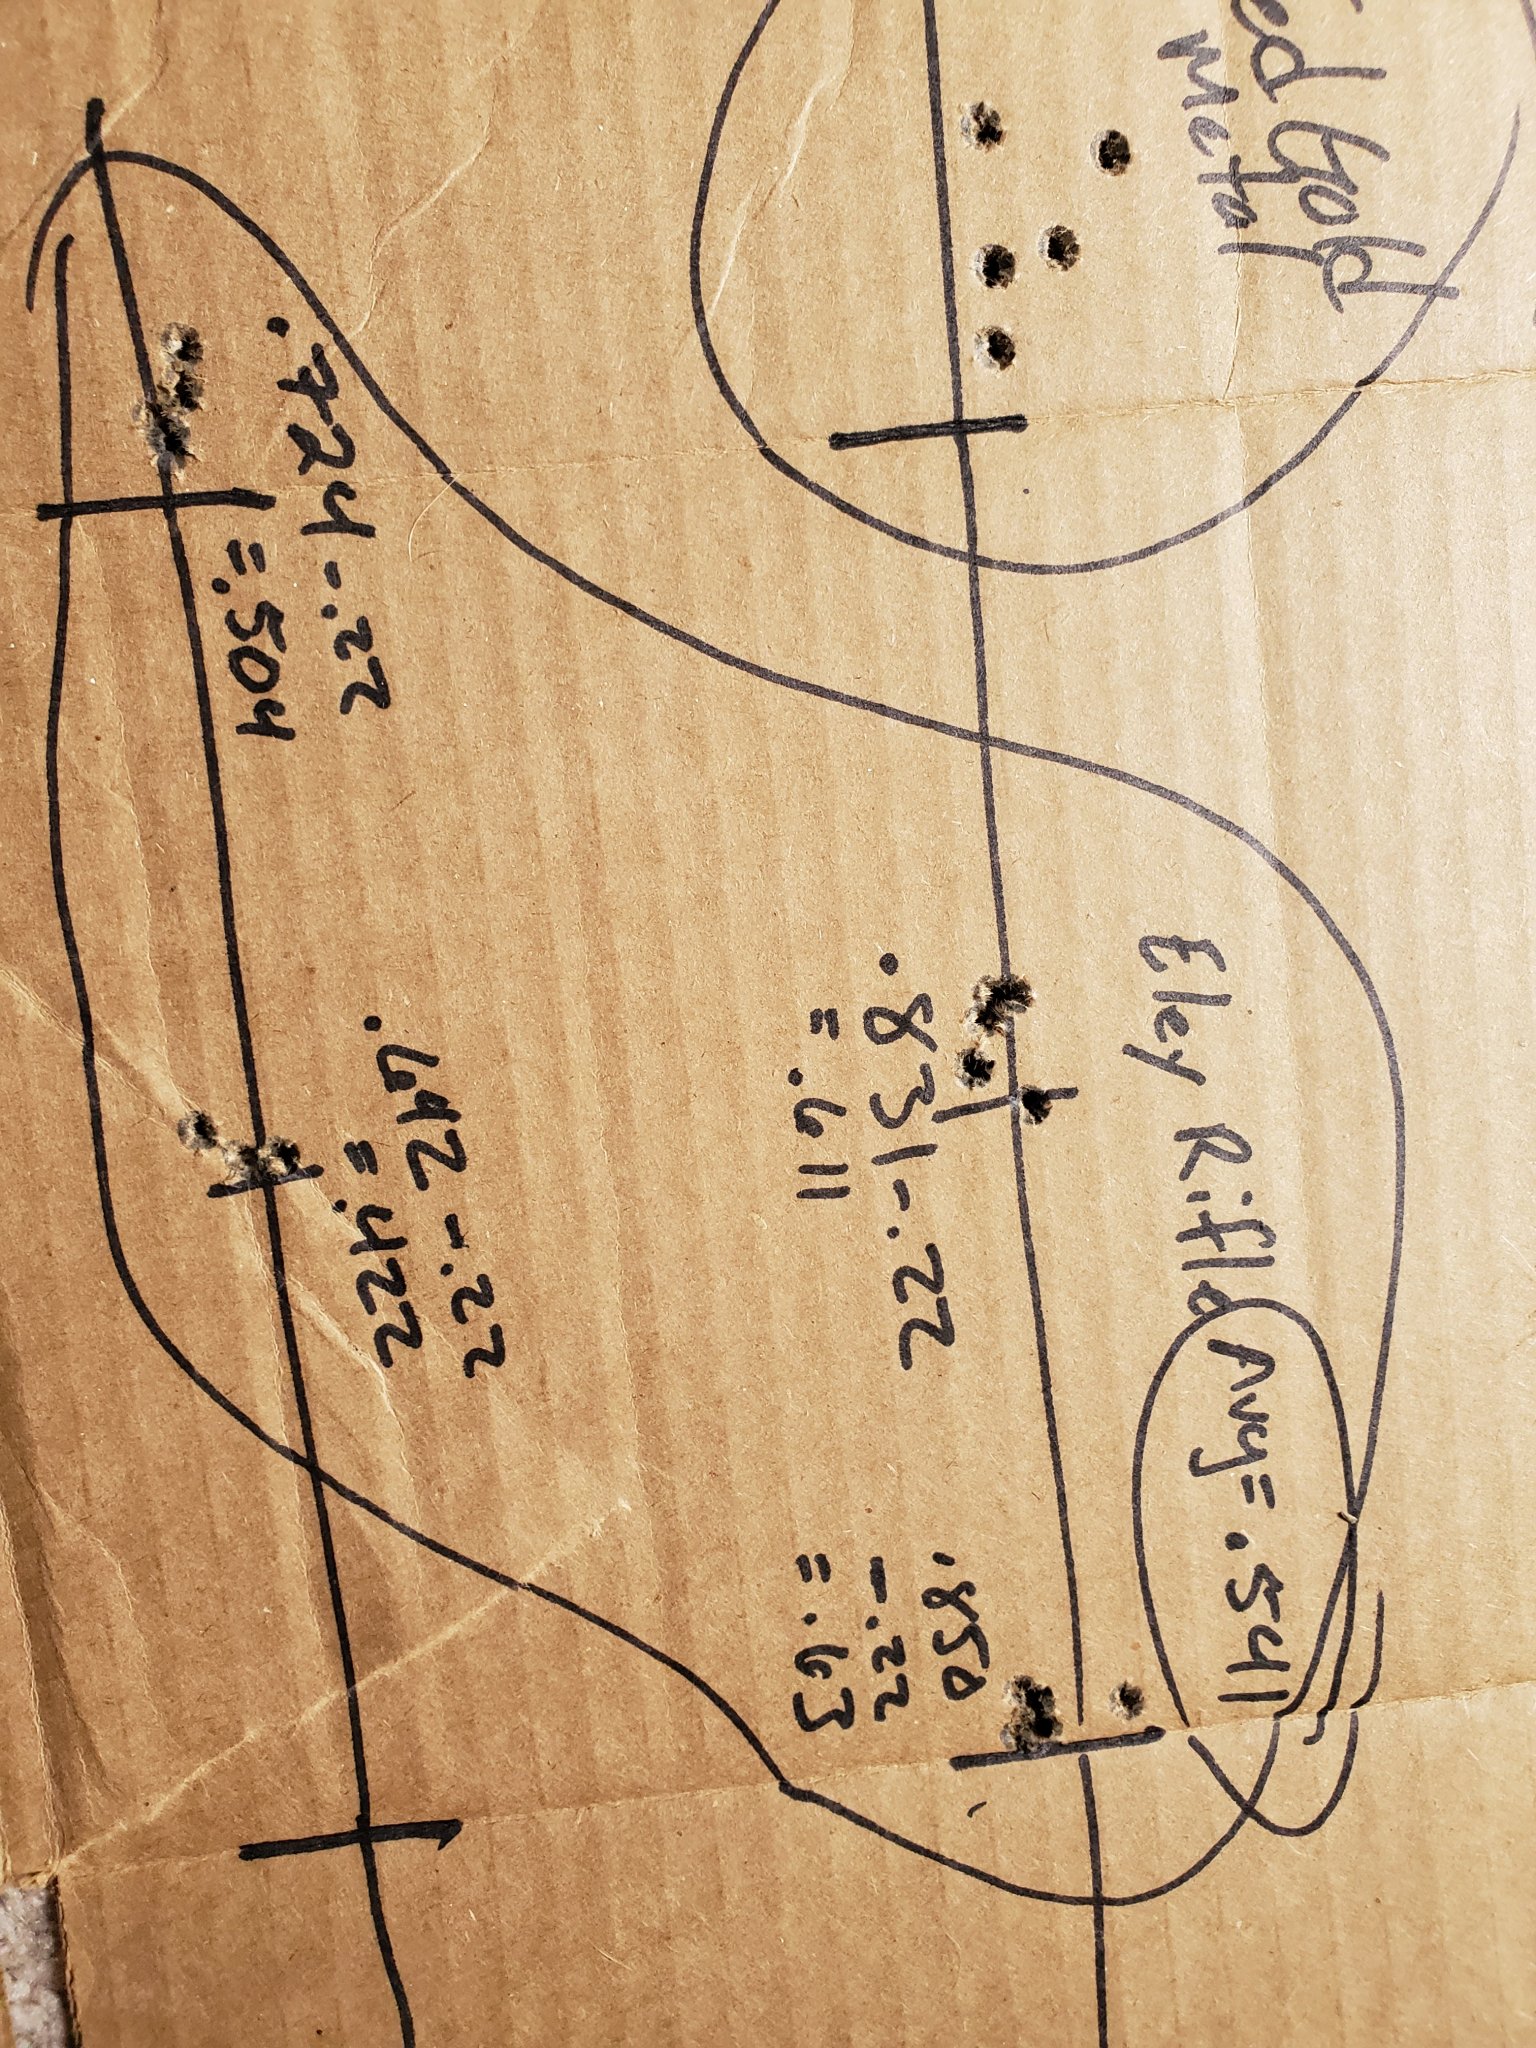 Gold
Metal
Eley Rifle Avg= .541
.831-.22
= .611
.850
-.22
= .63
.724-.22
=.504
.642-.22
=.422